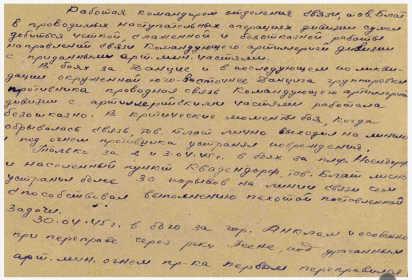 Работая командиром отделения связи, тов. Блат
в проводимых наступательных операциях дивизии сумел
добиться четкой, слаженной и безотказной работы
направлений связи Командующего артиллерией дивизии
с приданными арт. мин. частями.
В боях за Данциг и в последующем по ликви-
дации окруженной юго-восточнее Данцига группировки
противника проводная связь Командующего артиллерией
дивизии с артиллерийскими частями работала
безотказно. В критические моменты боя, когда
обрывалась связь, тов. Блат лично выходил на линию
и под огнем противника устранял повреждения.
Только за 2 и 3.04.45г. в боях за
и населенный пункт Квадендорф, тов. Блат лично
устранил более 30 порывов на линии связи чем
способствовал выполнению пехотой поставленной
Задачи.
30.04.45г. в бою за гор. Анклам и особенно
при переправе через реку Пеене, под ураганным
арт. мин. огнем пр-ка первым переправился